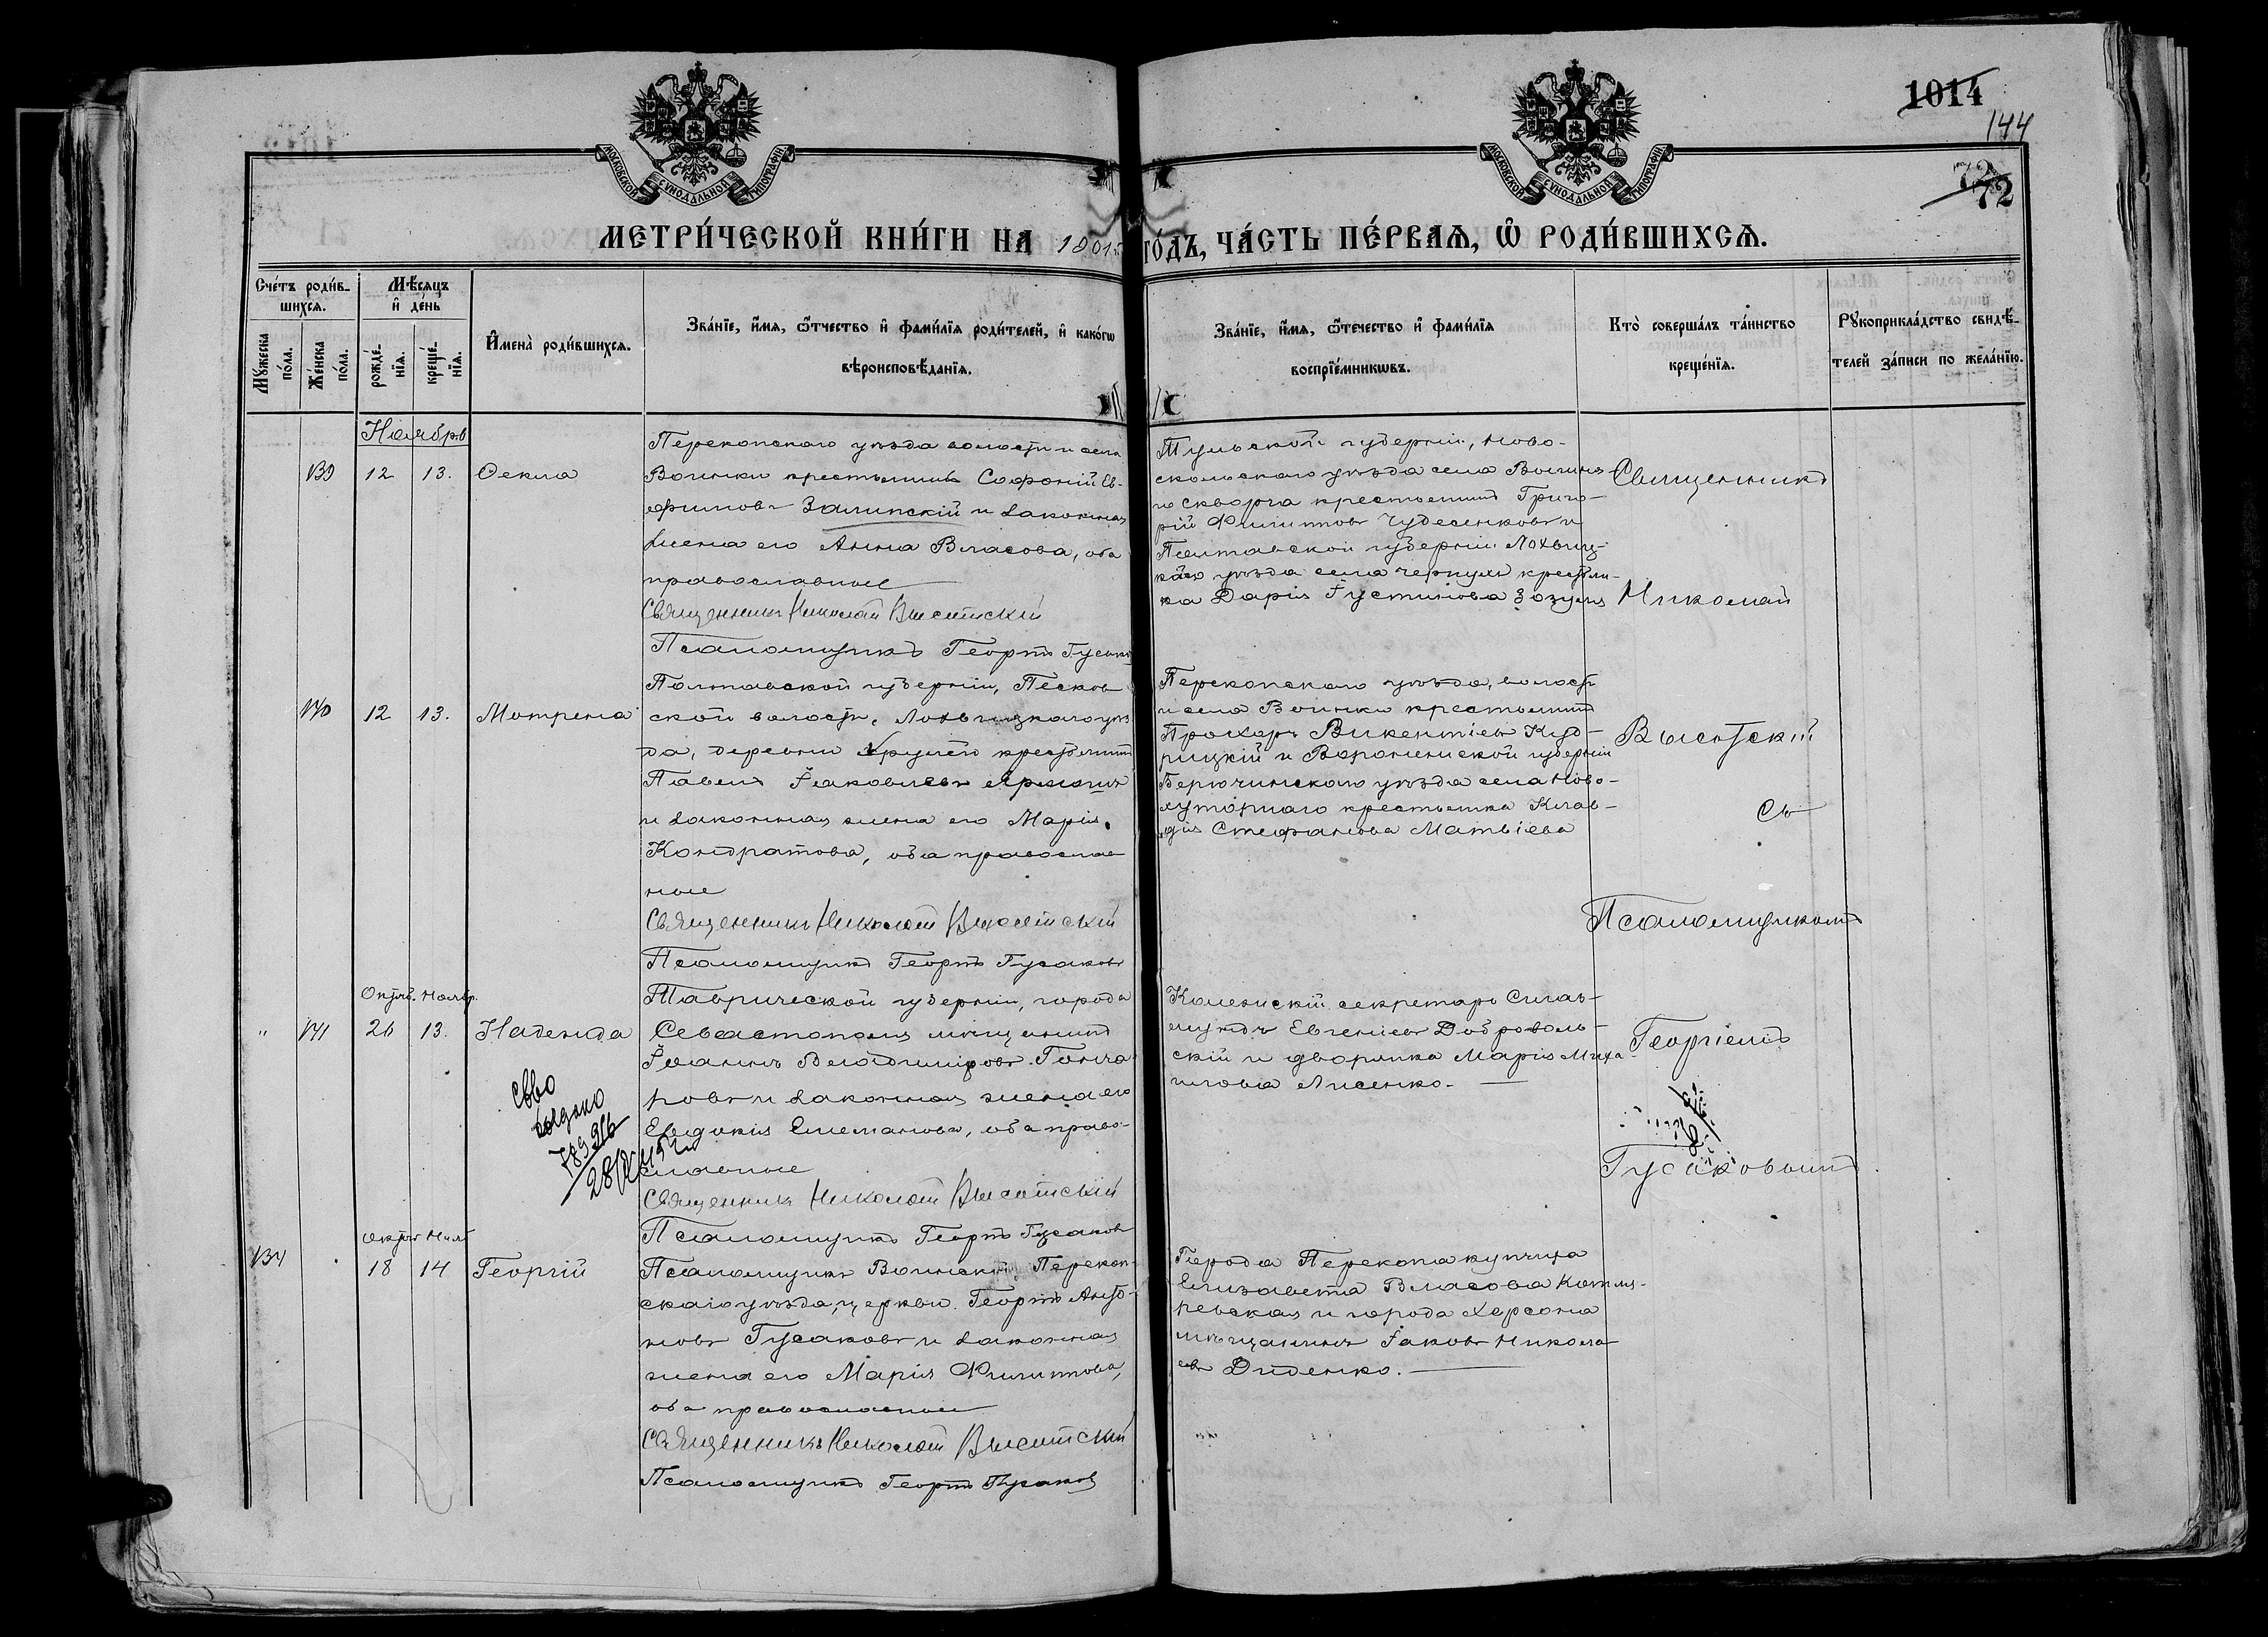 1014
144
72
72
МОСКОВСКОЙ СѴНОДАЛЬНОЙ ТИПОГРАФІИ
МОСКОВСКОЙ СѴНОДАЛЬНОЙ ТИПОГРАФІИ
МЕТРИ́ЧЕСКОЙ КНИ́ГИ НА ГО́ДЪ, ЧА́СТЬ ПЕ́РВАѦ, Ѡ҆ РОДИ́ВШИХСѦ.
Сче́тъ роди́в-
шихсѧ.
Мꙋ́жеска по́ла.
Же́нска по́ла.
Мѣ́сѧцъ
и҆ де́нь
рожде́-
нїѧ.
креще́-
нїѧ.
И҆мена̀ роди́вшихсѧ.
Зва́нїе, и҆́мѧ, ѻ҆́тчество и҆ фами́лїѧ роди́телей, и҆ како́гѡ
вѣроисповѣ́данїѧ.
Зва́нїе, и҆́мѧ, ѻ҆те́чество и҆ фами́лїѧ
воспрїе́мникѡвъ.
Кто̀ соверша́лъ та́инство
креще́нїѧ.
Рꙋкоприкла́дство свидѣ́-
телей за́писи по жела́нїю.
Ноябрь
139 12 13. Ѳекла
Перекопскаго уѣзда волости и села
Воинки крестьянинъ Софоній Ев-
фимовъ Залипскій и законная
жена его Анна Власова, оба
православные
Священникъ Николай Высотскій
Псаломщикъ Георгій
Тульской губерніи, Ново-
сильскаго уѣзда села
крестьянинъ Григо-
рій Филиповъ Чудесенковъ и
Полтавской губерніи Лохвиц-
каго уѣзда села крестьян-
ка Дарія Іустинова Зозуля
140 12 13. Мотрена
Полтавской губерніи, Песков-
ской волости, Лохвицкаго уѣз-
да, деревни крестьянинъ
Павелъ Іаковлевъ
и законная жена его Марія
Кондратова, оба православ-
ные
Священникъ Николай Высотскій
Псаломщикъ Георгій Гусаковъ
Перекопскаго уѣзда, волости
и села Воинки крестьянинъ
Прохоръ Викентіевъ Куд-
рицкій и Воронежской губерніи
Бирюченскаго уѣзда села Ново-
хуторнаго крестьянка Клав-
дія Стефанова Матвіева
Октяб. Ноябр.
" 141 26 13. Надежда
Таврической губерніи, города
Севастополя мѣщанинъ
Іоаннъ Владиміровъ Гонча-
ровъ и законная жена его
Евдокія Емельянова, оба право-
славные
Священникъ Николай Высотскій
Псаломщикъ Георгій Гусаковъ
Коллежскій секретарь Сигиз-
мундъ Евгеніевъ Доброволь-
скій и дворянка Марія Миха-
илова Лисенко.
Октяб Нояб
134 18 14 Георгій
Псаломщикъ Воинской, Перекоп-
скаго уѣзда, церкви Георгій
новъ Гусаковъ и законная
жена его Марія Филиппова,
оба православные
Священникъ Николай Высотскій
Псаломщикъ Георгій Гусаковъ
Города Перекопа купчиха
Елизавета Власова Котля-
ревская и города Херсона
мѣщанинъ Іаковъ Никола-
евъ Диденко.
Священникъ
Николай
Высотскій
Съ
Псаломщикомъ
Георгіемъ
Гусаковымъ